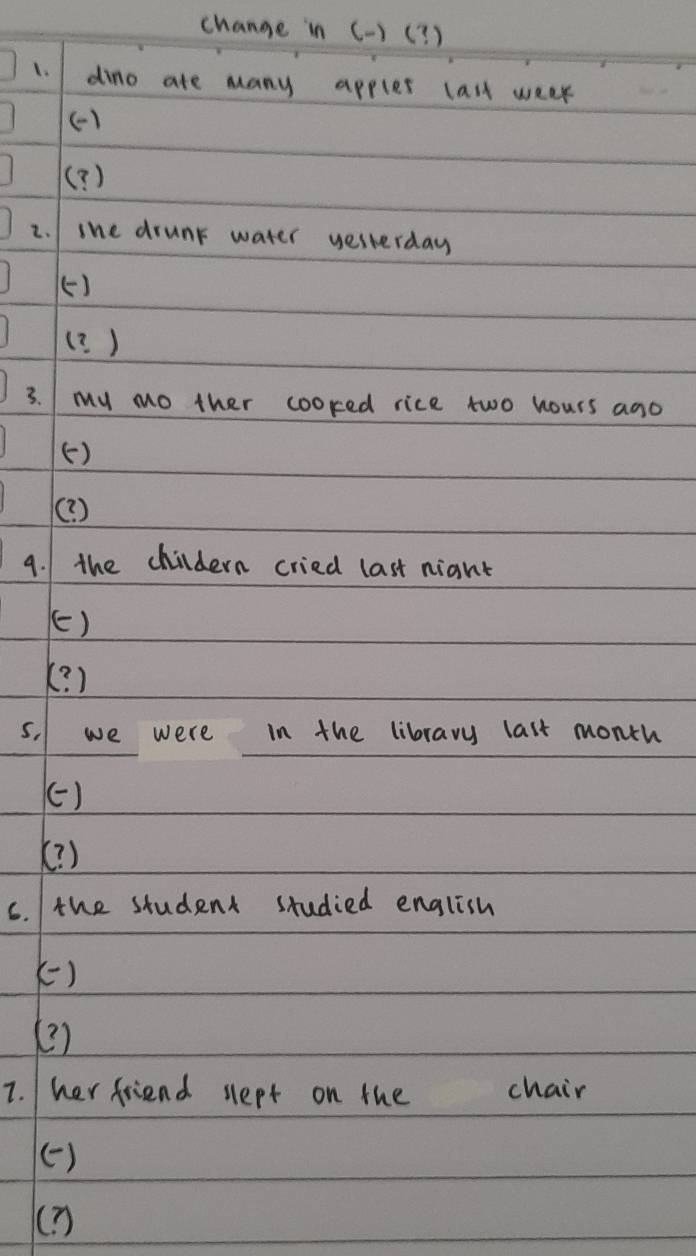 change in (-) (?)
1. dino ate many apples last week
(-)
(?)
2. she drunk water yesterday
(-)
(?)
3. my mo ther cooked rice two hours ago
(-)
(?)
4. the childern cried last night
(-)
(?)
5. we were in the library last month
(-)
(?)
6. the student studied english
(-)
(?)
7. her friend slept on the chair
(-)
(?)